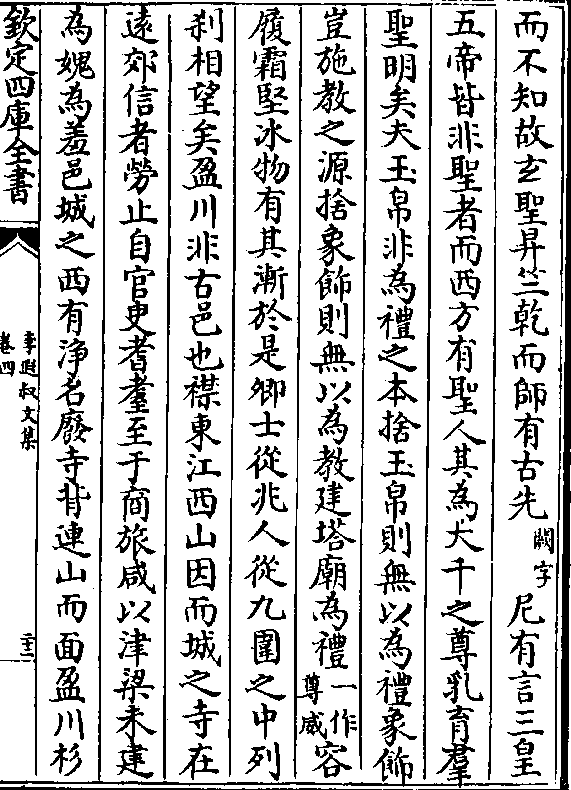 而不知故玄聖昇竺乾而師有古先闕字尼有言三皇
五帝皆非聖者而西方有聖人其為大千之尊乳育羣
聖明矣夫玉帛非為禮之本捨玉帛則無以為禮象飾
豈施教之源捨象飾則無以為教建塔廟為禮一作尊威容
履霜堅冰物有其漸於是卿士從兆人從九圍之中列
刹相望矣盈川非古邑也襟東江西山因而城之寺在
遠郊信者勞止自官吏耆耋至于商旅咸以津梁未建
為媿為羞邑城之西有浄名廢寺背連山而面盈川杉
欽定四庫全書
李遐叔文集
卷四
二十二